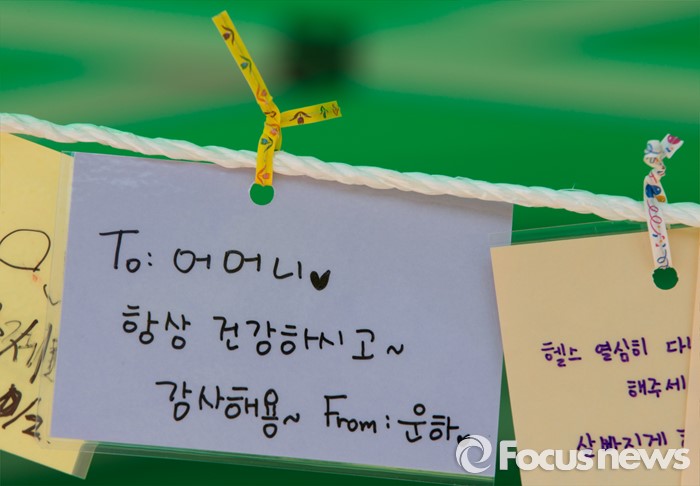 To: 어머니♥
항상 건강하시고~
감사해용~ From: 운하
헬스 열심히
해주세
살빠지게
Focusnews